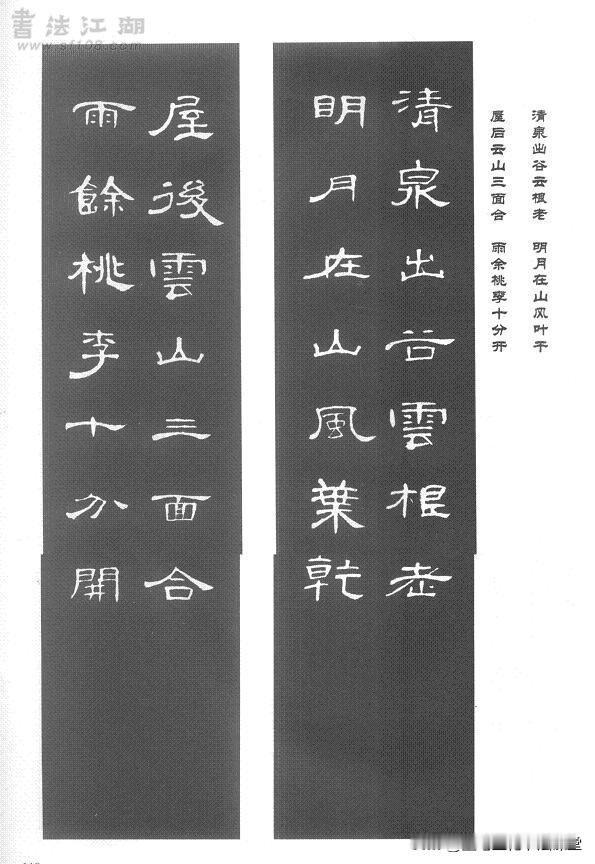 書法江湖
www.sf108.com
清泉出谷云根老 明月在山风叶干
屋后云山三面合 雨余桃李十分开
清泉出谷雲根老
明月在山風葉乾
屋後雲山三面合
雨餘桃李十分開